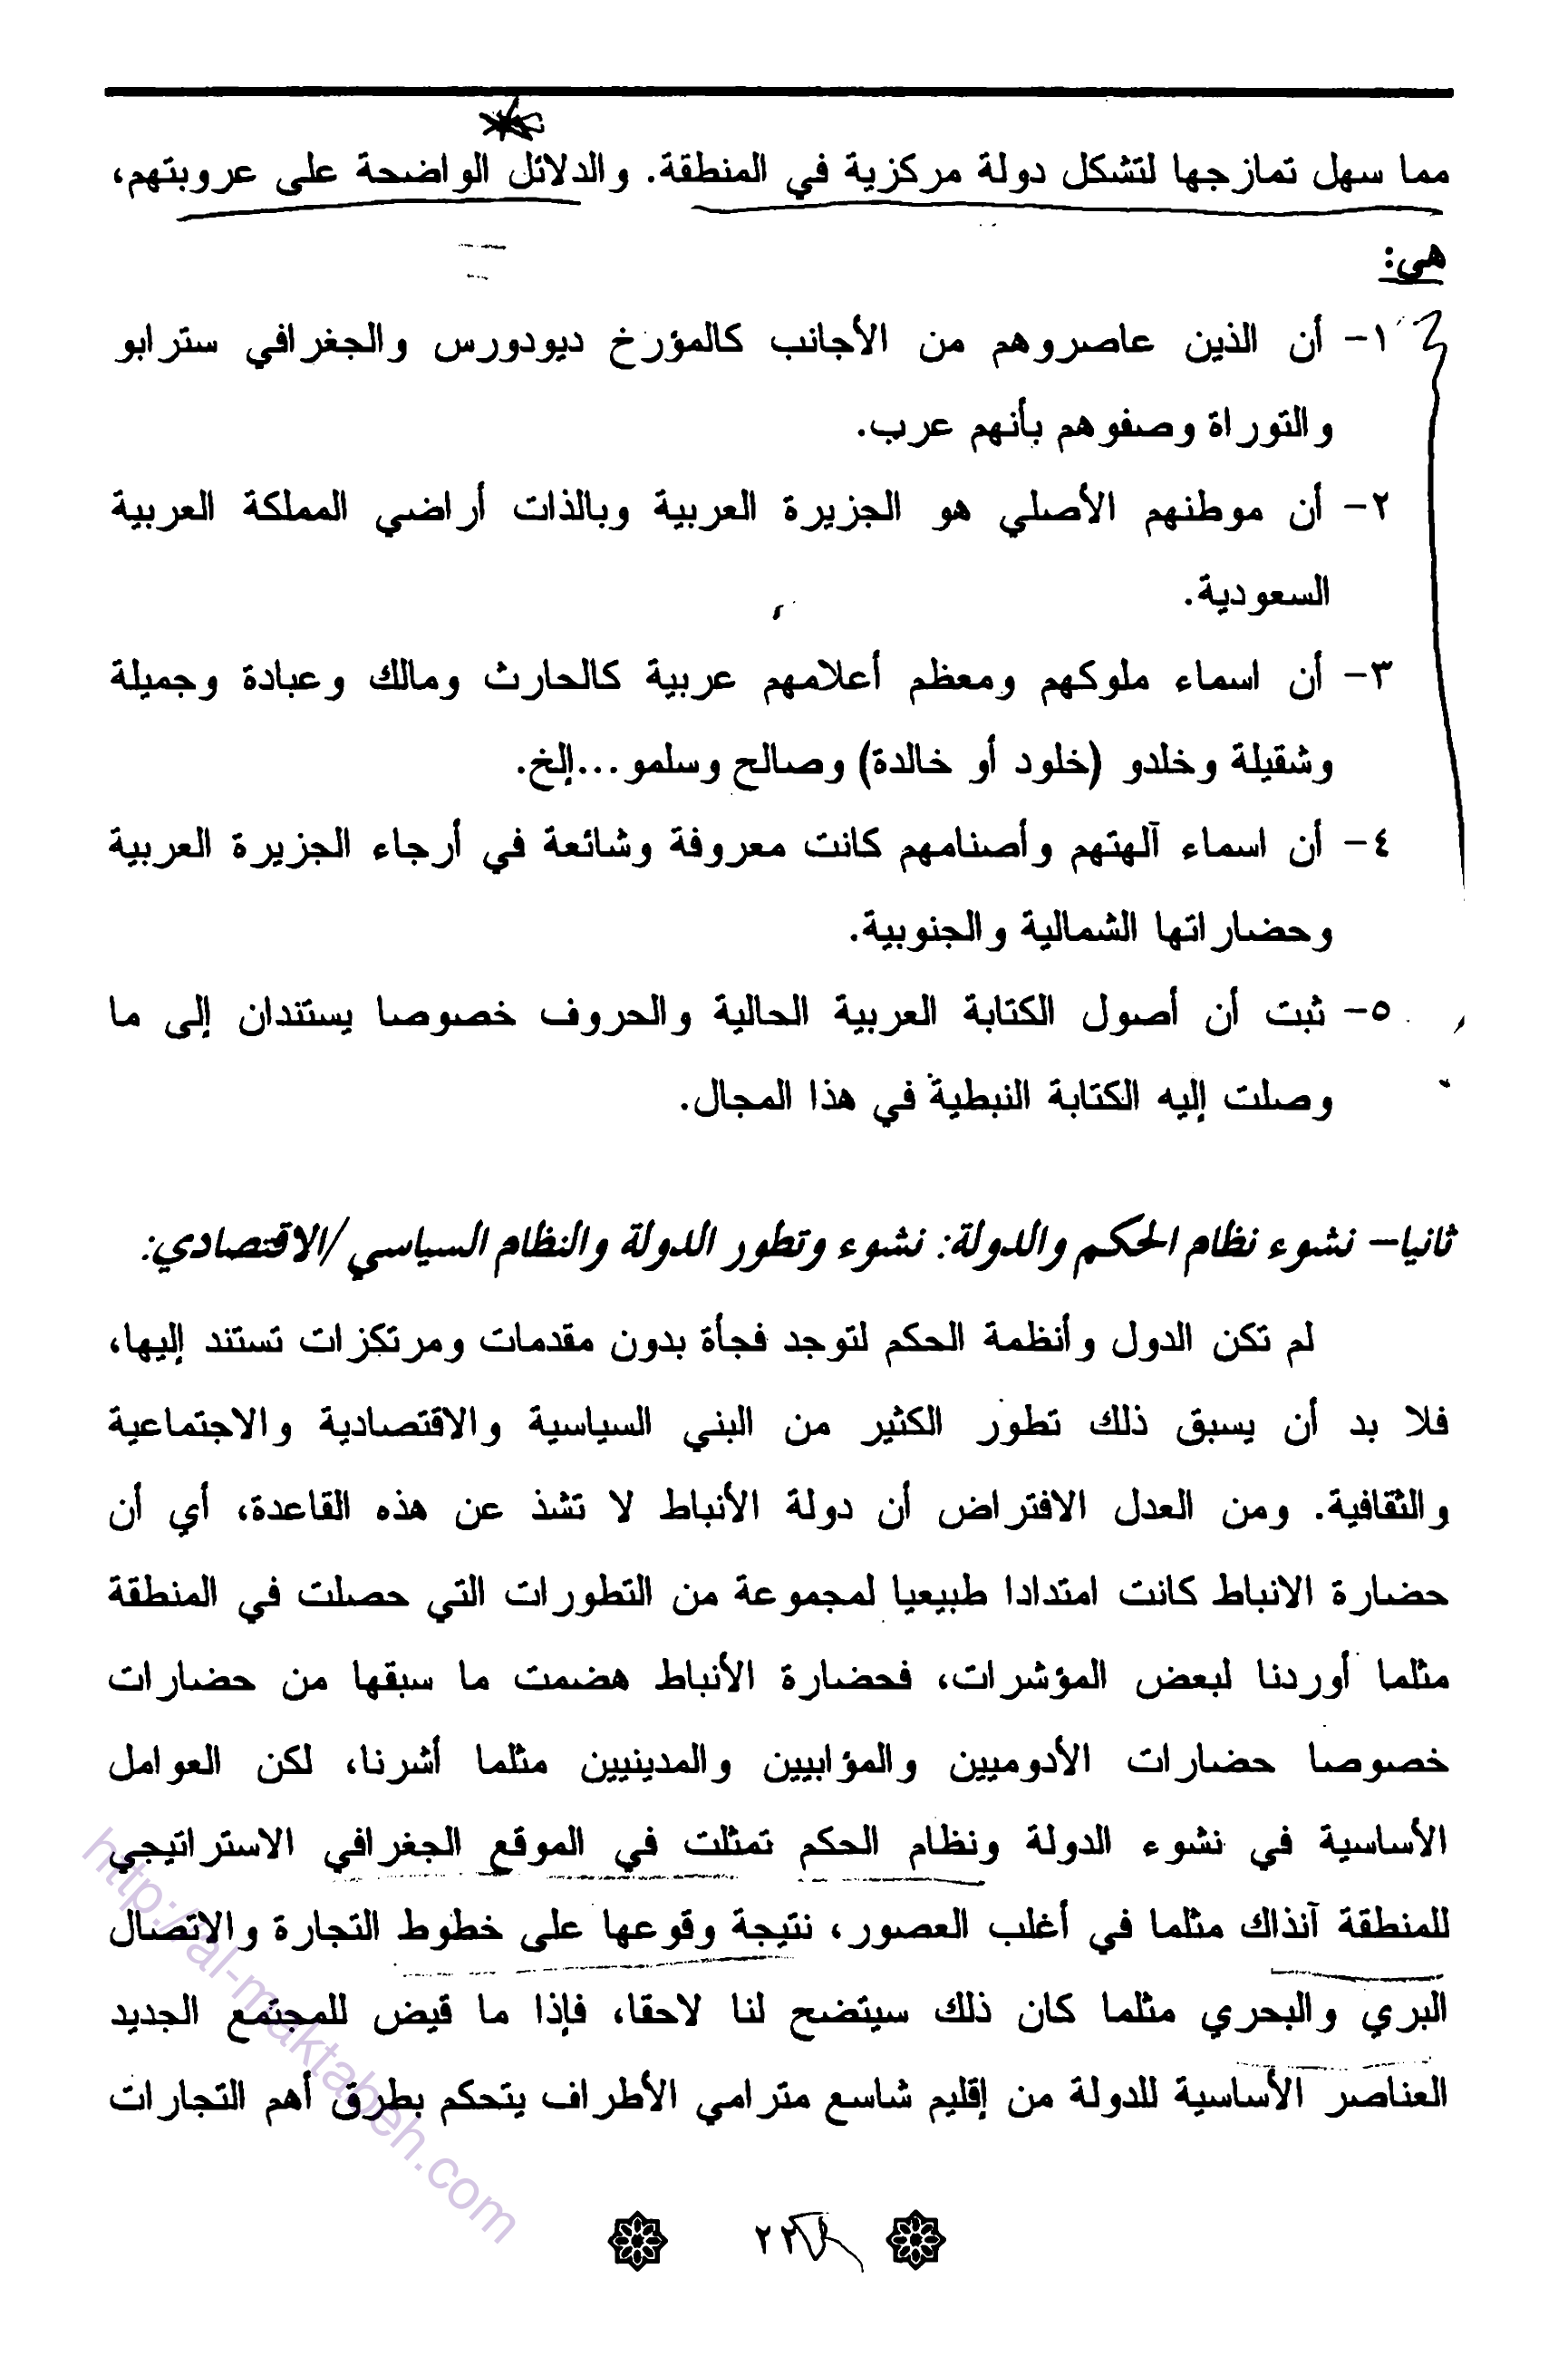 مما سهل تمازجها لتشكل دولة مركزية في المنطقة. والدلائل الواضحة على عروبتهم،
هي:
١- أن الذين عاصروهم من الأجانب كالمؤرخ ديودورس والجغرافي سترابو
والتوراة وصفوهم بأنهم عرب.
٢- أن موطنهم الأصلي هو الجزيرة العربية وبالذات أراضي المملكة العربية
السعودية.
٣- أن اسماء ملوكهم ومعظم أعلامهم عربية كالحارث ومالك وعبادة وجميلة
وشقيلة وخلدو (خلود أو خالدة) وصالح وسلمو...إلخ.
٤- أن اسماء آلهتهم وأصنامهم كانت معروفة وشائعة في أرجاء الجزيرة العربية
وحضاراتها الشمالية والجنوبية.
٥- ثبت أن أصول الكتابة العربية الحالية والحروف خصوصا يستندان إلى ما
وصلت إليه الكتابة النبطية في هذا المجال.
ثانيا- نشوء نظام الحكم والدولة: نشوء وتطور الدولة والنظام السياسي/الاقتصادي:
لم تكن الدول وأنظمة الحكم لتوجد فجأة بدون مقدمات ومرتكزات تستند إليها،
فلا بد أن يسبق ذلك تطور الكثير من البني السياسية والاقتصادية والاجتماعية
والثقافية. ومن العدل الافتراض أن دولة الأنباط لا تشذ عن هذه القاعدة، أي أن
حضارة الانباط كانت امتدادا طبيعيا لمجموعة من التطورات التي حصلت في المنطقة
مثلما أوردنا لبعض المؤشرات، فحضارة الأنباط هضمت ما سبقها من حضارات
خصوصا حضارات الأدوميين والمؤابيين والمدينيين مثلما أشرنا، لكن العوامل
الأساسية في نشوء الدولة ونظام الحكم تمثلت في الموقع الجغرافي الاستراتيجي
للمنطقة آنذاك مثلما في أغلب العصور، نتيجة وقوعها على خطوط التجارة والاتصال
البري والبحري مثلما كان ذلك سيتضح لنا لاحقا، فإذا ما قيض للمجتمع الجديد
العناصر الأساسية للدولة من إقليم شاسع مترامي الأطراف يتحكم بطرق أهم التجارات
٢٢
http://al-maktabeh.com